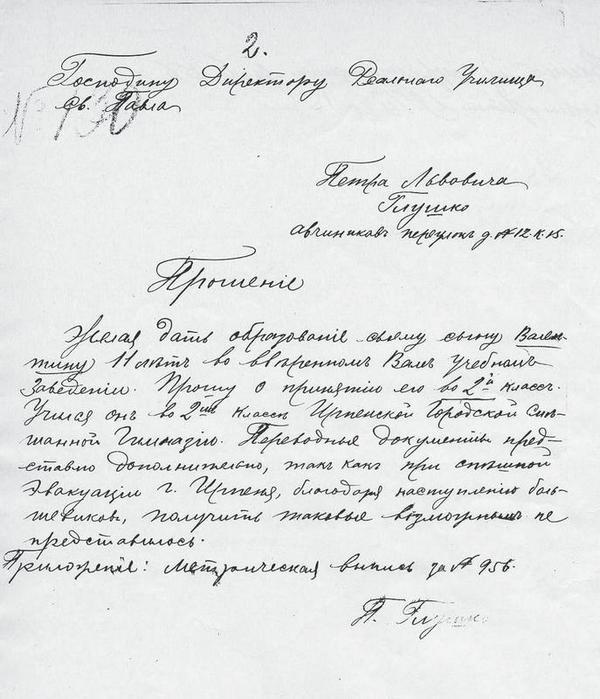 2.
Господину Директору Реальнаго Училища
Св. Павла
№ 130
Петра Львовича
Глушко
авчиников переулок д. № 12. к. 15.
Прошеніе
Желая дать образованіе своему сыну Вален-
тину 11 лѣтъ во ввѣренномъ Вамъ учебномъ
Заведеніи. Прошу о принятіи его во 2й классъ.
Учился онъ во 2мъ классѣ Ирпенской Городской Смѣ-
шанной Гимназіи. Переводные документы пред-
ставлю дополнительно, такъ какъ при спѣшной
Эвакуаціи г. Ирпеня, благодаря наступленію боль-
шевиков, получить таковые возможнымъ не
представилось.
Приложеніе: Метрическая выпись за № 956.
П. Глушко